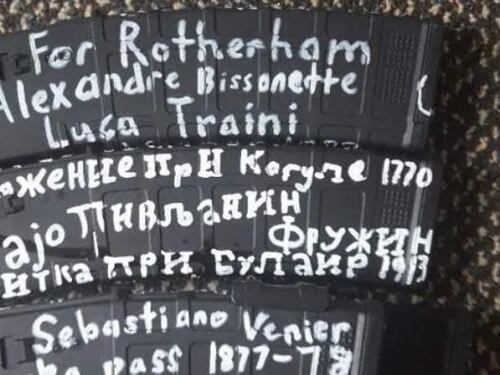 For Rotherham
Alexandre Bissonette
Luca Traini
Кагуле 1770
Пивљанин
Фружин
при Булаир 1913
Sebastiano Venier
pass 1877-78